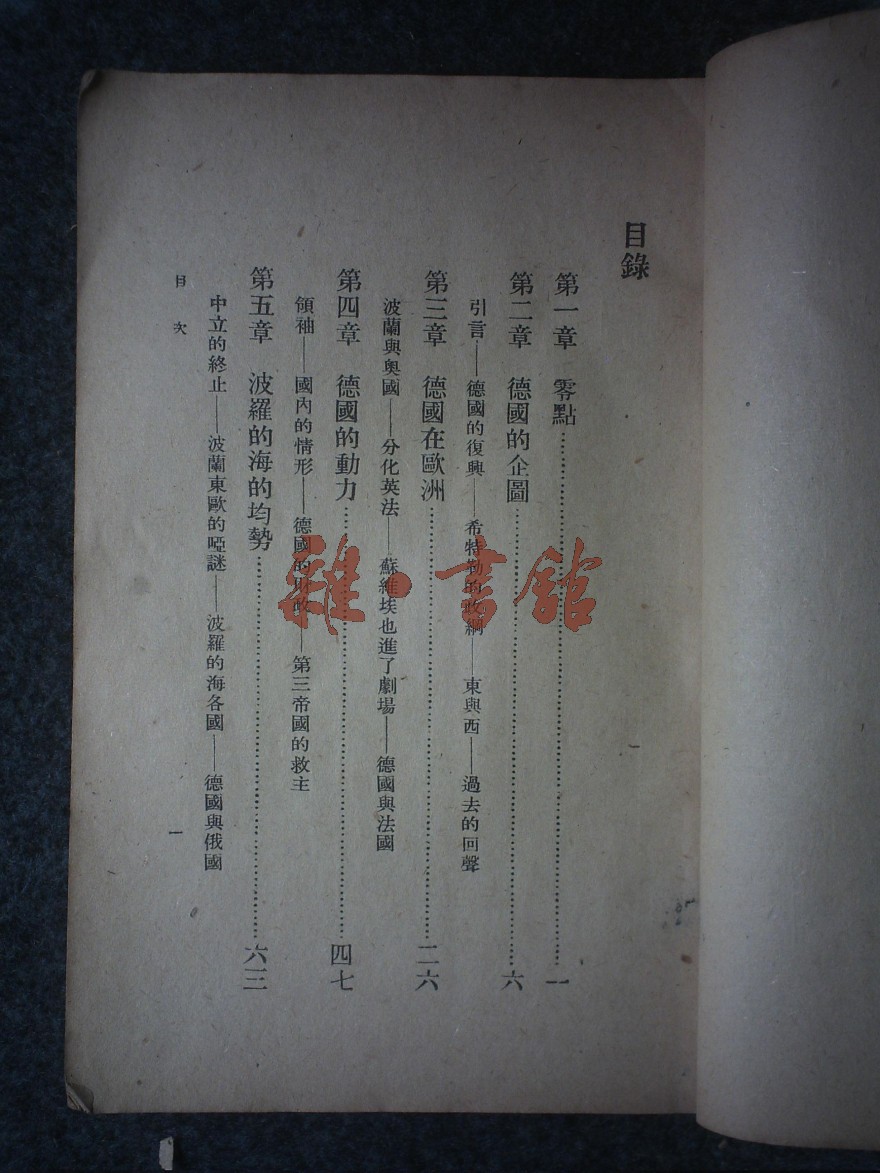 目錄
第一章 零點……一
第二章 德國的企圖……六
引言——德國的復興——希特勒的政綱——東與西——過去的回聲
第三章 德國在歐洲……二六
波蘭與奧國——分化英法——蘇維埃也進了劇場——德國與法國
第四章 德國的動力……四七
領袖——國內的情形——德國的財政——第三帝國的救主
第五章 波羅的海的均勢……六三
中立的終止——波蘭東歐的啞謎——波羅的海各國——德國與俄國
目次 一
雜·書館